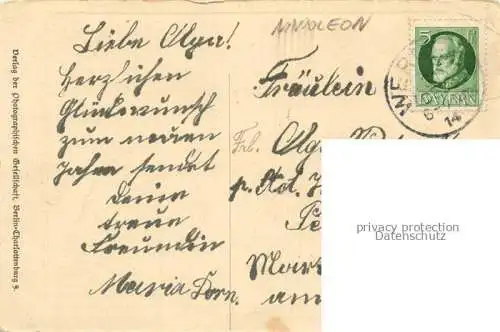 NAPOLEON
Liebe Olga!
Herzlichen
Glückwunsch
zum neuen
Jahre sendet
Deine
treue
Freundin
Maria Dorn.
Fräulein
Frl. Olga
p. Ad.
Mar
am
5
BAYERN
14
privacy protection
Datenschutz
Verlag der Photographischen Gesellschaft, Berlin-Charlottenburg 9.